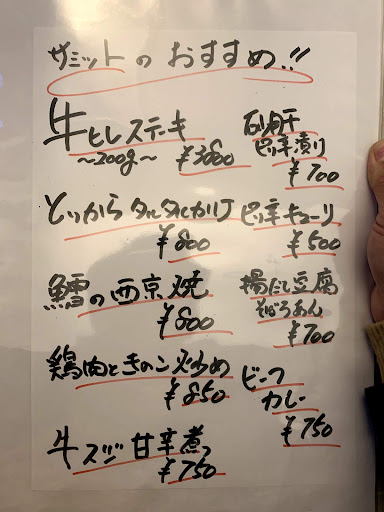 サミットのおすすめ!!
牛ヒレステーキ
~200g~ ¥3800
とりからタルタルカリー
¥800
鱈の西京焼
¥800
鶏肉ときのこ炒め
¥850
牛スジ甘辛煮
¥750
砂肝
ピリ辛漬り
¥700
ピリ辛キューリ
¥500
揚だし豆腐
そぼろあん
¥700
ビーフ
カレー
¥750